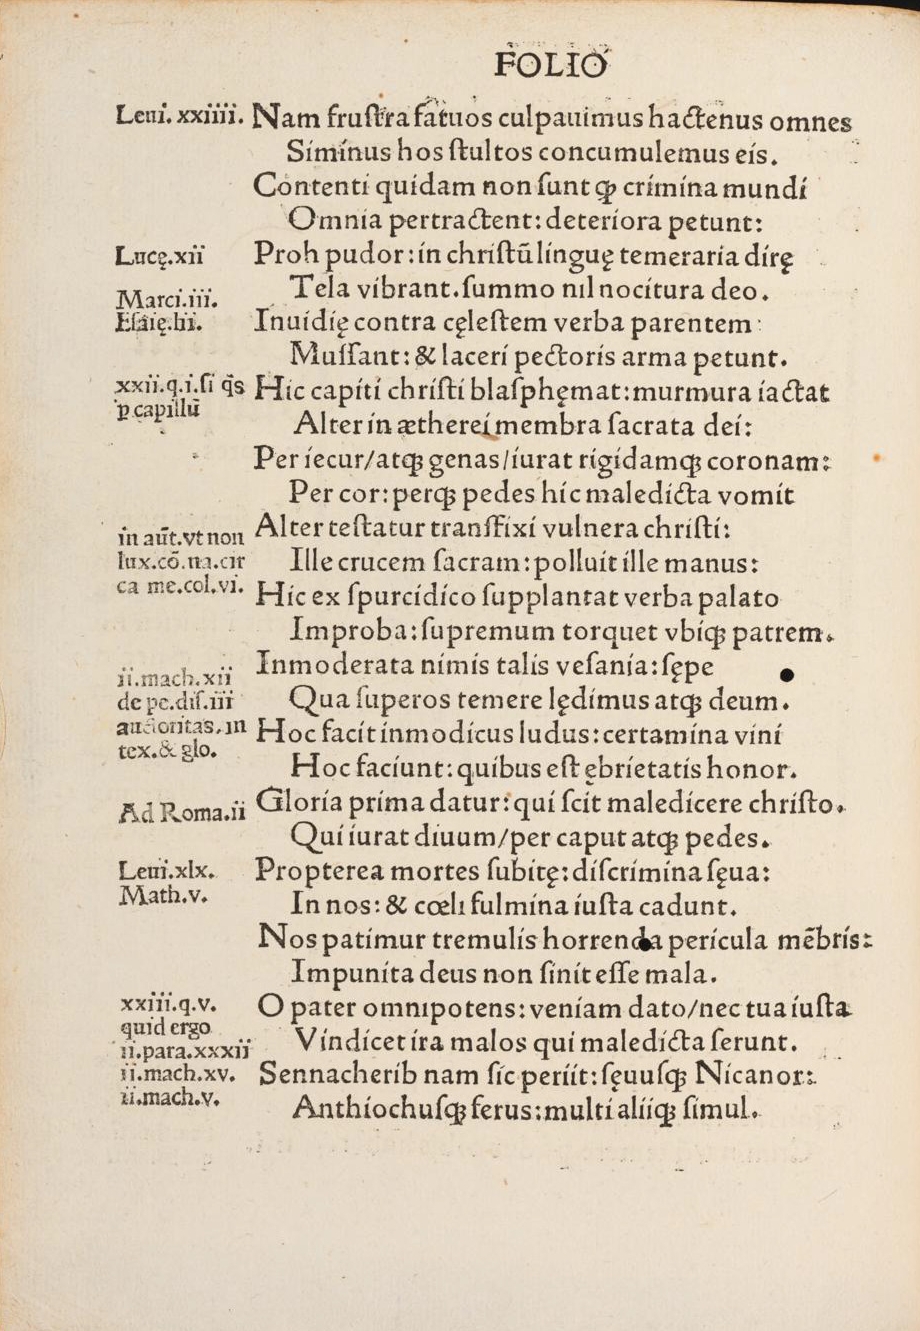 FOLIO
Leui. xxiiii. Nam fruſtra fatuos culpauimus hactenus omnes
Siminus hos ſtultos concumulemus eis.
Contenti quidam non ſunt ꝙ crimina mundi
Omnia pertractent: deteriora petunt:
Lucę.xii Proh pudor: in chriſtū linguę temeraria dirę
Marci.iii. Tela vibrant. ſummo nil nocitura deo.
Eſaię.lii. Inuidię contra cęleſtem verba parentem:
Muſſant: & laceri pectoris arma petunt.
xxii.q.i.ſi q̄s Hic capiti chriſti blaſphęmat: murmura iactat
ꝑ capillū Alter in ætherei membra ſacrata dei:
Per iecur/atqꝫ genas/iurat rigidamqꝫ coronam:
Per cor: perqꝫ pedes hic maledicta vomit
in aūt.vt non Alter teſtatur tranſfixi vulnera chriſti:
lux.cō.na.cir Ille crucem ſacram: polluit ille manus:
ca me.col.vi. Hic ex ſpurcidico ſupplantat verba palato
Improba: ſupremum torquet vbiqꝫ patrem.
ii.mach.xii Inmoderata nimis talis veſania: ſępe
de pe.diſ.iii Qua ſuperos temere lędimus atqꝫ deum.
auctoritas.in Hoc facit inmodicus ludus: certamina vini
tex.& glo. Hoc faciunt: quibus eſt ębrietatis honor.
Ad Roma.ii Gloria prima datur: qui ſcit maledicere chriſto.
Qui iurat diuum/per caput atqꝫ pedes.
Leui.xlx. Propterea mortes ſubitę: diſcrimina ſęua:
Math.v. In nos: & cœli fulmina iuſta cadunt.
Nos patimur tremulis horrenda pericula mēbris:
Impunita deus non ſinit eſſe mala.
xxiii.q.v. O pater omnipotens: veniam dato/nec tua iuſta
quid ergo
ii.para.xxxii Vindicet ira malos qui maledicta ferunt.
ii.mach.xv. Sennacherib nam ſic periit: ſęuuſqꝫ Nicanor:
ii.mach.v. Anthiochuſqꝫ ferus: multi aliiqꝫ ſimul.